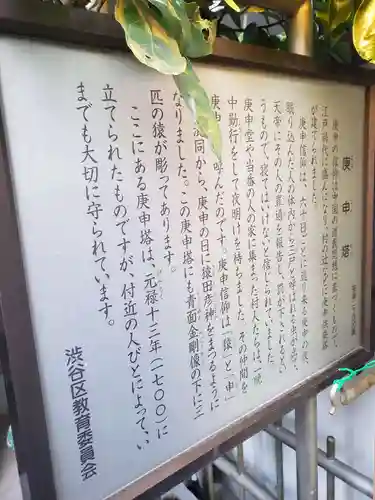 庚申塔
庚申の信仰は中国の道教思想に基づくもので、
江戸時代に盛んになり、村の辻などに庚申供養塔
が建てられました。
庚申信仰は、六十日ごとに巡り来る庚申の夜、
眠り込んだ人の体内から三尸と呼ばれる虫が出て、
天帝にその人の罪過を報告し、罰が下されるとい
うもので、寝てはいけないと信じられていました。
庚申堂や当番の人の家に集まった村人たちは、一晩
中勤行をして夜明けを待ちました。その仲間を
庚申
呼んだのです。庚申信仰は「猿」と「申」
同から、庚申の日に猿田彦神をまつるように
なりました。この庚申塔にも青面金剛像の下に三
匹の猿が彫ってあります。
ここにある庚申塔は、元禄十三年(一七〇〇)に
立てられたものですが、付近の人びとによって、い
までも大切に守られています。
渋谷区教育委員会